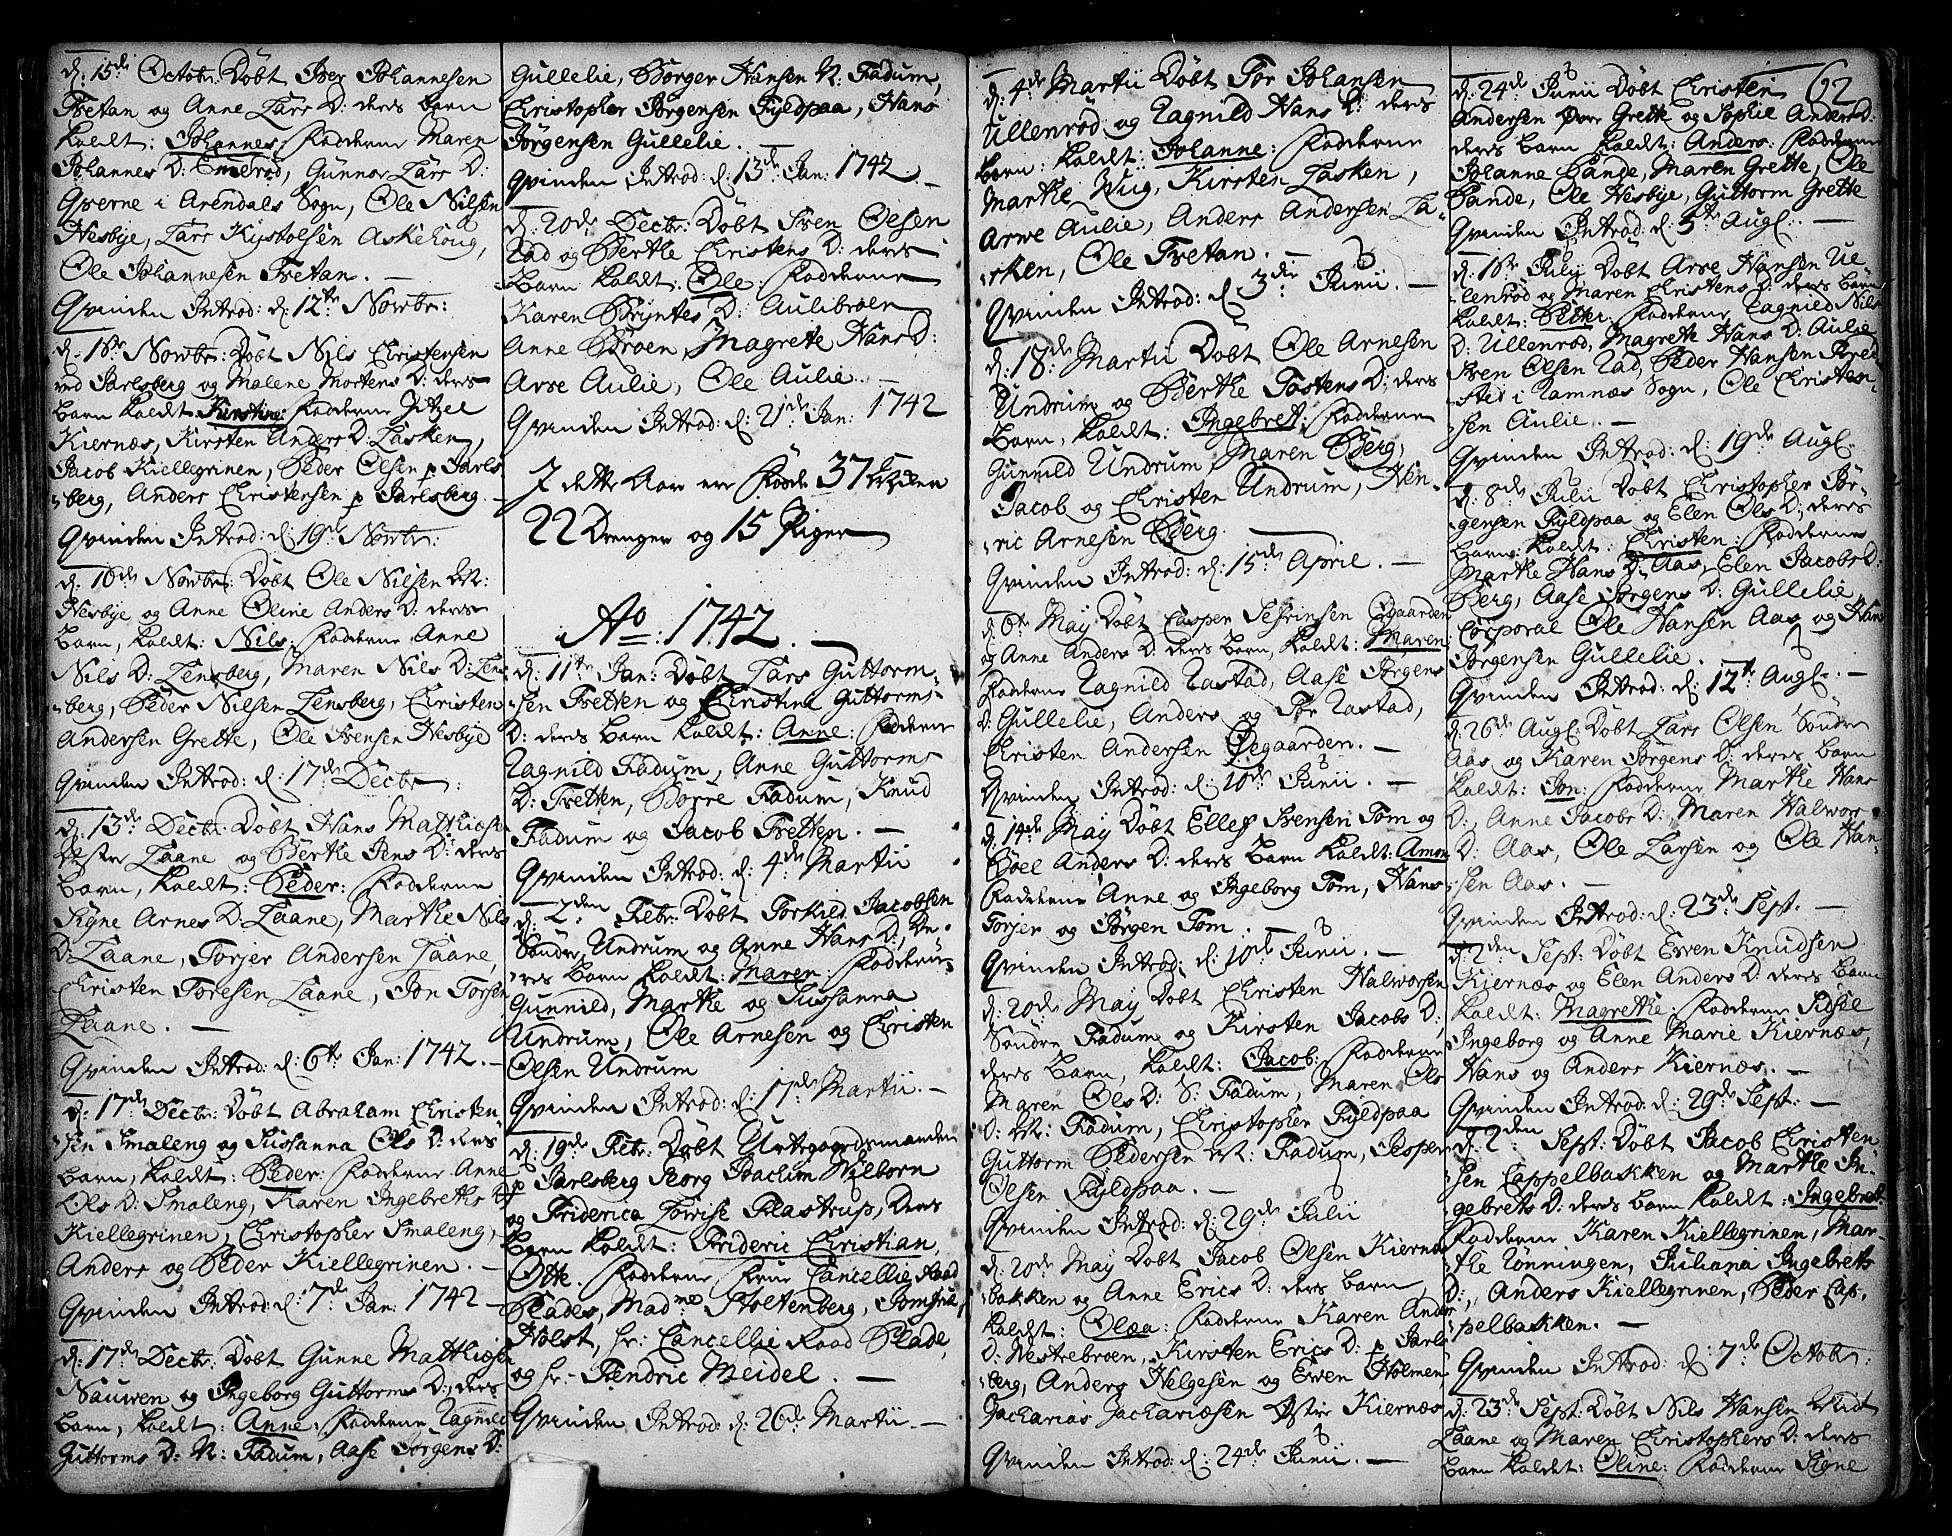 d: 15de Octobr: Döbt Iver Johannesen
Tvetan og Anne Lars D: ders barn
kaldt: Johannes: Fadderne Maren
Johannes D: Emerød, Gunnor Lars D:
Qverne i Arendals Sogn, Ole Nilsen
Nesbye, Lars Kystolsen Askehoug,
Ole Johannesen Tvetan. —
Qvinden Introd: d: 12te Novbr:
d: 16de Novbr: Döbt Nils Christensen
ved Jarlsberg og Malene Mortens D: ders
barn kaldt Kirstine: Fadderne Zitzel
Kiernæs, Kirsten Anders D: Lasken,
Jacob Kiellegrinen, Peder Olsen p Jarls
-berg, Anders Christensen p Jarlsberg. —
Qvinden Introd: d: 19de Novbr:
d: 16de Novbr: Döbt Ole Nilsen
Nesbye og Anne Oline Anders D: ders
barn, kaldt: Nils. Fadderne Anne
Nils D: Lensberg, Maren Nils D: Lens
-berg, Peder Nilsen Lensberg, Christen
Andersen Grette, Ole Svensen Nesbye
Qvinden Introd: d: 17de Decbr:
d: 13de Decbr: Döbt Hans Matthiese
Laane og Berthe Jens D: ders
barn, kaldt: Peder: Fadderne
Signe Arnes D: Laane, Marthe Nils
D: Laane, Torjer Andersen Laane,
Christen Toresen Laane, Jon Torsen
Laane. —
Qvinden Introd: d: 6te Jan: 1742. —
d: 17de Decbr: Döbt Abraham Christen
-sen Smaleng og Sussanna Ols D: ders
barn, kaldt: Peder: Fadderne Anne
Ols D: Smaleng, Karen Ingebreths D:
Kiellegrinen, Christopher Smaleng,
Anders og Peder Kiellegrinen. —
Qvinden Introd: d: 7de Jan: 1742 —
d: 17de Decbr: Döbt Gunne Matthiæsen
Nauwen og Ingeborg Guttorms D: ders
barn, kaldt: Anne: Fadderne Ragnild
Guttorms D: N: Fadum, Aase Jørgens D:
Gullelie, Børger Hansen N: Fadum,
Christopher Jørgensen Fyldpaa, Hans
Jørgensen Gullelie. —
Qvinden Introd: d: 13de Jan: 1742. —
d: 20de Decbr: Döbt Sven Olsen
Rad og Berthe Christens D: ders
Barn kaldt: Ole: Fadderne
Karen Brynte D: Aulibroen
Anne Broen, Magrete Hans D:
Arse Aulie, Ole Aulie. —
Qvinden Introd: d: 21de Jan: 1742
I dette Aar ere Fødde 37
22 Drenger og 15 Piger
Ao: 1742. —
d: 11te Jan: Döbt Lars Guttorm-
-sen Tvetten og Christina Guttorms
D: ders barn kaldt: Anne: Fadderne
Ragnild Fadum, Anne Guttorms
D: Tvetten, Børre Fadum, Knud
Fadum og Jacob Tvetten. —
Qvinden Introd: d: 4de Martii
d: 2den Febr: Döbt Torkild Jacobsen
Søndre Undrum og Anne Hans D: De-
-res barn kaldt: Maren: Fadderne
Gunnild, Marthe og Sussanna
Undrum, Ole Arnesen og Christen
Olsen Undrum
Qvinden Introd: d: 17de Martii. —
d: 19de Febr: Döbt Urtegaardsmanden
p Jarlsberg Georg Joachim Wilborn
og Friderica Lowise Plastrup, Ders
Barn kaldt: Frideric Christian
Otte. Fadderne Frue Cancellie Raad
Plades, Madme Stoltenberg, Jomfrue
Holst, hr: Cancellie Raad Plade,
og hr. Fendric Meidel. —
Qvinden Introd: d: 26de Martii. —
d: 4de Martii Döbt Tor Johansen
Ullenrød og Ragnild Hans D: ders
Barn: kaldt: Johanne: Fadderne
Marthe Wiig, Kirsten Lasken,
Arwe Aulie, Anders Andersen La-
-sken, Ole Tvetan. —
Qvinden Introd: d: 3die Junii. —
d: 18de Martii Döbt Ole Arnesen
Undrum og Berthe Tostens D: ders
Barn, kaldt: Ingebret: Fadderne
Gunnild Undrum, Maren Berg,
Jacob og Christen Undrum, Hen-
-ric Arnesen Berg. —
Qvinden Introd: d: 15de April. —
d: 6te May Döbt Casper Sefrinsen Ødgaarden
og Anne Anders D: ders barn, kaldt: Maren
Fadderne Ragnild Rastad, Aase Jørgens
D: Gullelie, Anders og Tor Rastad,
Christen Andersen Ødegaarden. —
Qvinden Introd: d: 10de Junii. —
d: 14de May Döbt Ellef Svensen Tom og
Boel Anders D: ders barn kaldt: Amon
Fadderne Anne og Ingeborg Tom, Hans
Torjer og Jørgen Tom. —
Qvinden Introd: d: 10de Junii. —
d: 20de May Döbt Christen Halworsen
Søndre Fadum og Kirsten Jacobs D:
ders barn, kaldt: Jacob: Fadderne
Maren Ols D: S: Fadum, Maren Ols
D: Fadum, Christopher Fyldpaa
Guttorm Pedersen Fadum, Jesper
Olsen Fyldpaa. —
Qvinden Introd: d: 29de Julii
d: 20de May Döbt Jacob Olsen Kiernes
bakken og Anne Erics D: ders barn
kaldt: Olæa: Fadderne Karen Anders
D: Westrebroen, Kirsten Erics D: p Jarls
-berg, Anders Helgesen og Ewen Holmen
Zacharias Zachariæsen Østre Kiernæs
Qvinden Introd: d: 24de Junii. —
62
d: 24de Junii Döbt Christen
Andersen Øvre Grette og Sophie Anders D:
ders barn kaldt: Anders: Fadderne
Johanne Sande, Maren Grette, Ole
Sande, Ole Nesbye, Guttorm Grette
Qvinden Introd: d: 5te Aug: —
d: 1ste Julii Döbt Arse Hansen Ul
lenrød og Maren Christens D: ders barn
kaldt: Petter. Fadderne Ragnild Nils
D: Ullenrød, Magrethe Hans D: Aulie
Sven Olsen Rad, Peder Hansen Bred
sted i Ramnæs Sogn, Ole Christen-
sen Aulie. —
Qvinden Introd: d: 19de Aug: —
d: 8de Julii Döbt Christopher Jør-
gensen Fyldpaa og Elen Ols D: ders
barn: kaldt: Christen: Fadderne
Marthe Hans D: Aas, Elen Jacobs D:
Berg, Aase Jørgens D: Gullelie,
Corporal Ole Hansen Aas og Hans
Jørgensen Gullelie. —
Qvinden Introd: d: 12te Aug: —
d: 26de Aug: Döbt Lars Olsen Søndre
Aas og Karen Jørgens D: ders barn
kaldt: Jon: Fadderne Marthe Hans
D:, Anne Jacobs D:, Maren Halwors
D: Aas, Ole Larsen og Ole Han-
-sen Aas. —
Qvinden Introd: d: 23de Sept. —
d: 2den Sept: Döbt Ewen Knudsen
Kiernæs og Elen Anders D: ders barn
kaldt: Magrethe: Fadderne Sidsle
Ingeborg og Anne Marie Kiernæs,
Hans og Anders Kiernæs. —
Qvinden Introd: d: 29de Sept: —
d: 2den Sept: Döbt Jacob Christen
-sen Cappelbakken og Marthe In-
gebrets D: ders barn kaldt: Ingebret:
Fadderne Karen Kiellegrinen, Mar-
the Rønningen, Juliana Ingebrets
D:, Anders Kiellegrinen, Peder Cap-
-pelbakken. —
Qvinden Introd: d: 7de Octobr:
d: 23de Sept: Döbt Nils Hansen
Laane og Maren Christophers D: ders
barn kaldt: Oline: Fadderne Signe